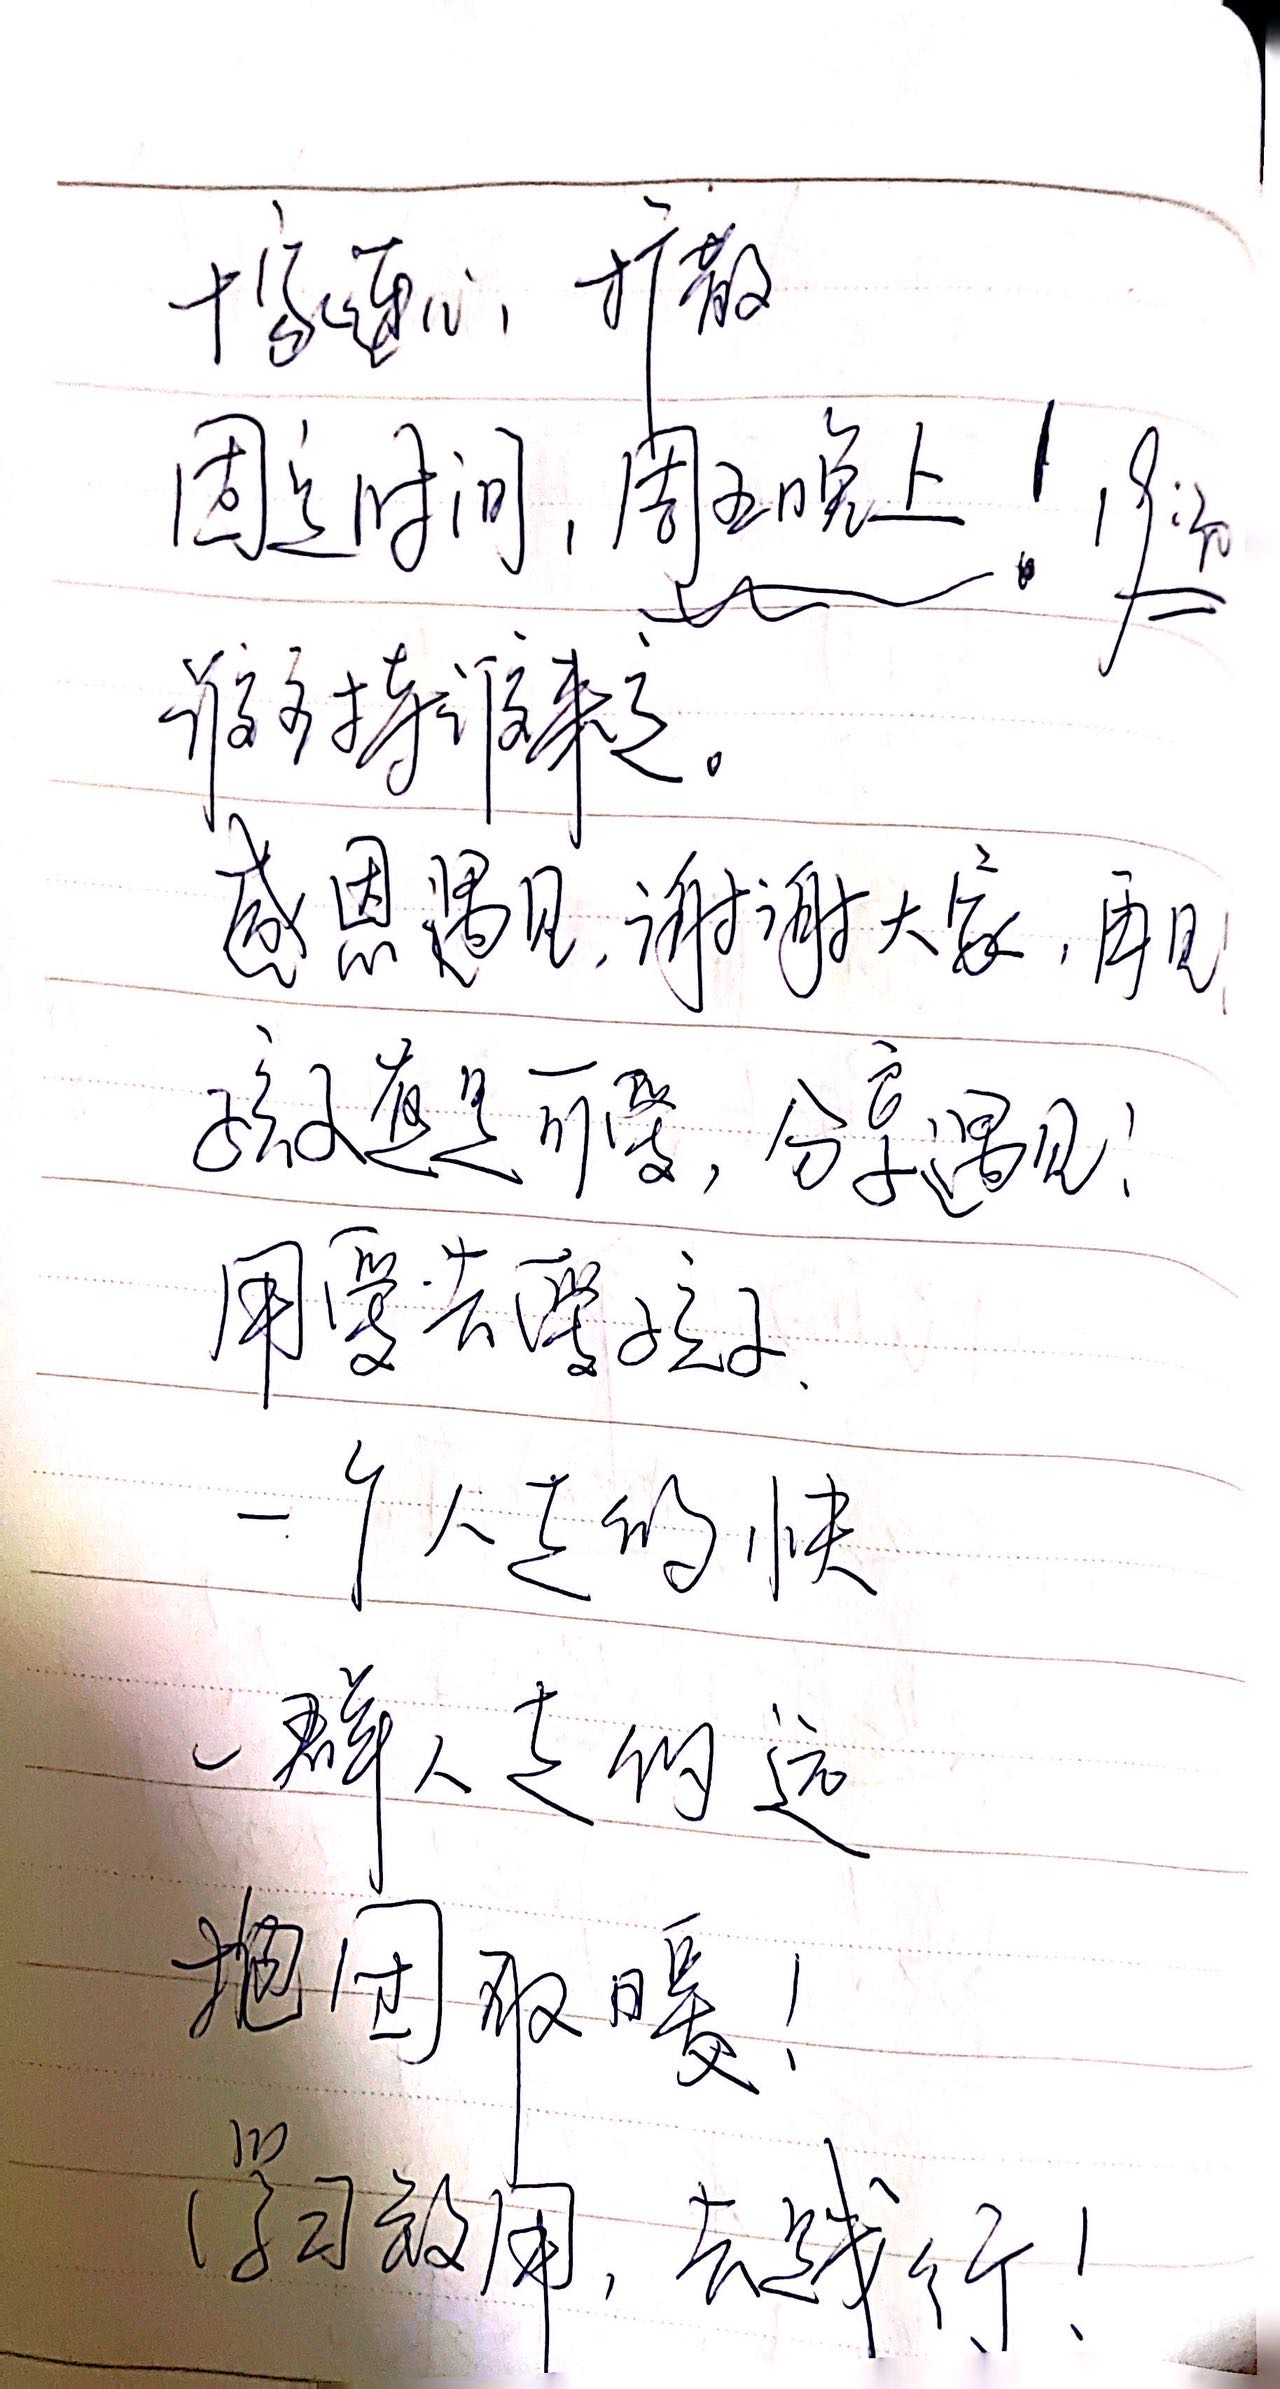 十家连心，扩散
固定时间，周五晚上！
谁主持谁来定。
感恩遇见，谢谢大家，再见！
孩子真是可爱，分享遇见！
用爱去爱孩子.
一个人走的快
一群人走的远
抱团取暖！
学习致用，去践行！